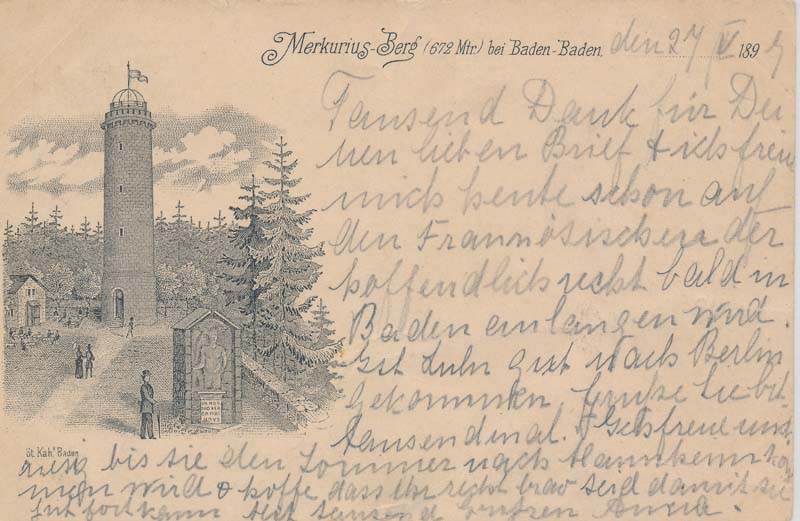 Merkurius-Berg (672 Mtr.) bei Baden-Baden.
den 27/V 1897
Tausend Dank für Dei
nen lieben Brief & ich freue
mich heute schon auf
den Französischen der
hoffendlich recht bald in
Baden anlangen wird.
Ist gut nach Berlin
gekommen, Grüße Liebet
tausendmal.
riesig bis sie den Sommer nach
men wird & hoffe dass Ihr recht brav seid damit sie
fort kann. Mit tausend Grüßen
St. Kath. Baden